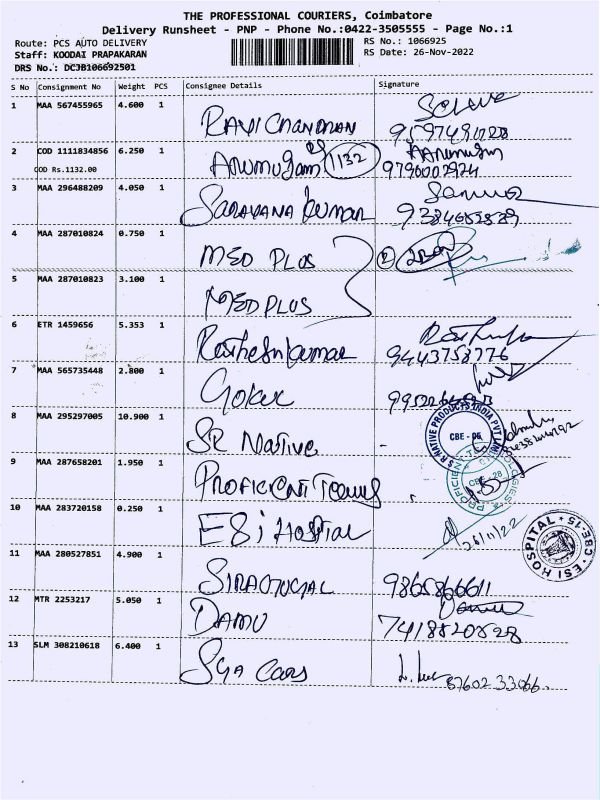 THE PROFESSIONAL COURIERS, Coimbatore
Delivery Runsheet - PNP - Phone No.:0422-3505555 - Page No.:1
Route: PCS AUTO DELIVERY
RS No.: 1066925
Staff: KOODAI PRAPAKARAN
RS Date: 26-Nov-2022
DRS No.: DCJB106692501
S No Consignment No Weight PCS Consignee Details Signature
1 MAA 567455965 4.600 1 RAVICHANDRAN
2 COD 1111834856 6.250 1 ARUMUGAM 1132
COD Rs.1132.00 9790002924
3 MAA 296488209 4.050 1 SARAVANA KUMAR
4 MAA 287010824 0.750 1 MED PLUS 2
5 MAA 287010823 3.100 1 MED PLUS
6 ETR 1459656 5.353 1
9443758776
7 MAA 565735448 2.800 1
8 MAA 295297005 10.900 1 SR Native
SR NATIVE PRODUCTS INDIA PVT LIM
CBE - 06
9 MAA 287658201 1.950 1 PROFICIENT
CBE - 28
10 MAA 283720158 0.250 1 ESI HOSPITAL 26/11/22
ESI HOSPITAL CBE-15
11 MAA 280527851 4.900 1 9865866611
12 MTR 2253217 5.050 1 DAMU
7418520828
13 SLM 308210618 6.400 1 SGA CARS
87602 33066